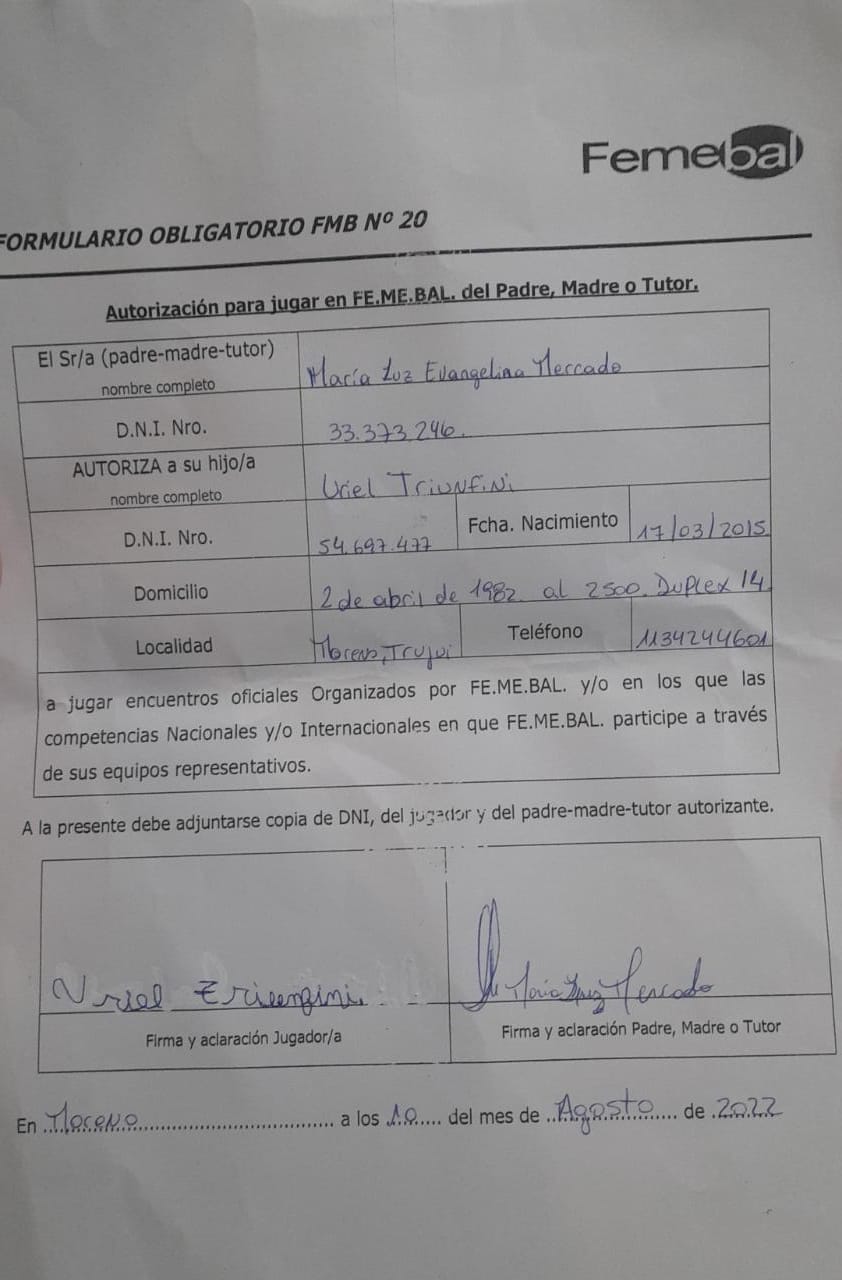 Femebal
FORMULARIO OBLIGATORIO FMB Nº 20
Autorización para jugar en FE.ME.BAL. del Padre, Madre o Tutor.
El Sr/a (padre-madre-tutor)
nombre completo
María Luz Evangelina Mercado
D.N.I. Nro.
33.373.246.
AUTORIZA a su hijo/a
nombre completo
Uriel Triunfini
D.N.I. Nro.
54.697.477
Fcha. Nacimiento
17/03/2015
Domicilio
2 de abril de 1982 al 2500. Duplex 14
Localidad
Moreno, Trujui
Teléfono
1134244601
a jugar encuentros oficiales Organizados por FE.ME.BAL. y/o en los que las
competencias Nacionales y/o Internacionales en que FE.ME.BAL. participe a través
de sus equipos representativos.
A la presente debe adjuntarse copia de DNI, del jugador y del padre-madre-tutor autorizante.
Uriel
María Luz Mercado
Firma y aclaración Jugador/a
Firma y aclaración Padre, Madre o Tutor
En Moreno a los 10 del mes de Agosto de 2022